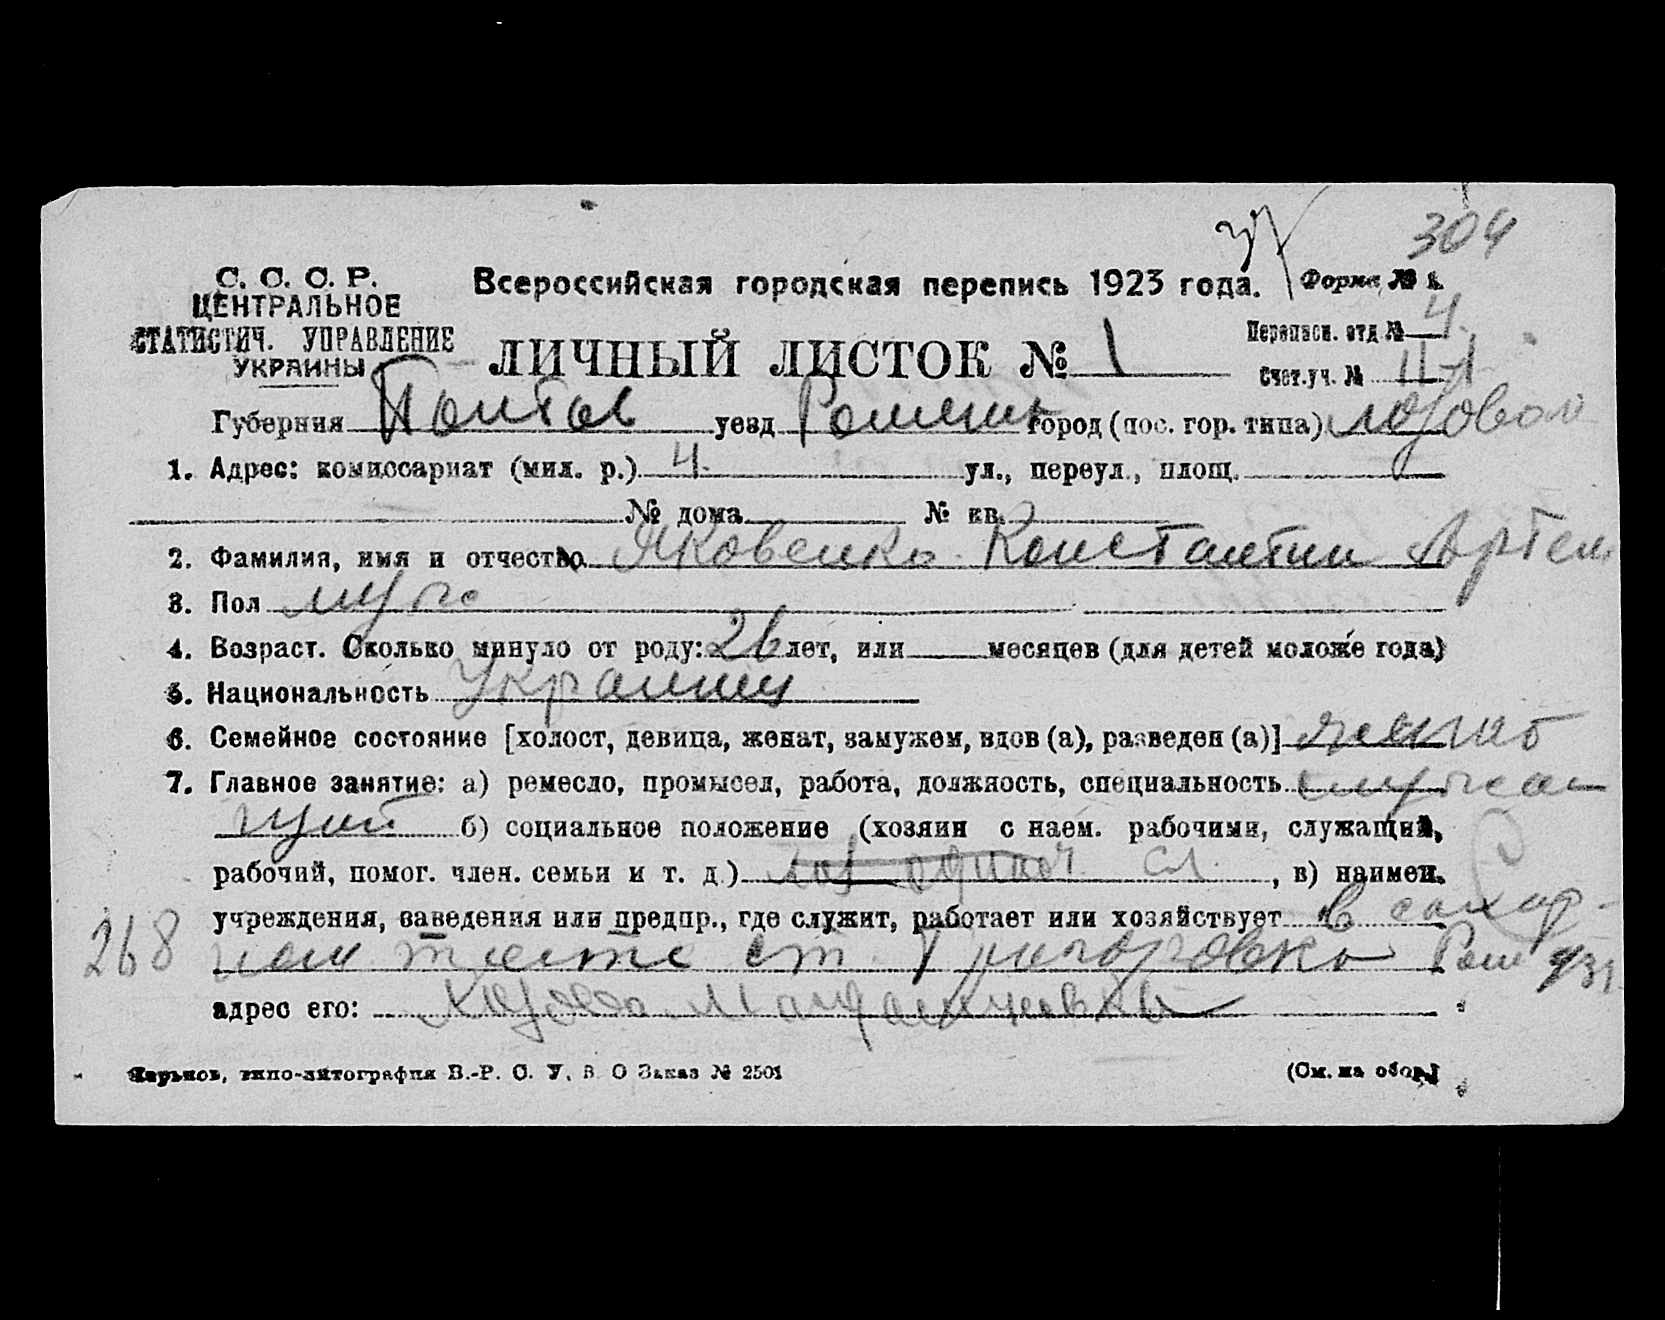 304
С. С. С. Р.
ЦЕНТРАЛЬНОЕ
СТАТИСТИЧ. УПРАВЛЕНИЕ
УКРАИНЫ
Всероссийская городская перепись 1923 года.
Форма № 1.
Переписн. отд № 4.
ЛИЧНЫЙ ЛИСТОК № 1
Счет. уч. № II-1
Губерния Полтав уезд Роменск город (пос. гор. типа)
1. Адрес: комиссариат (мил. р.) 4. ул., переул., площ.
№ дома № кв.
2. Фамилия, имя и отчество Яковенко Константин Артем
3. Пол муж
4. Возраст. Сколько минуло от роду: 26 лет, или месяцев (для детей моложе года)
5. Национальность Украинец
6. Семейное состояние [холост, девица, женат, замужем, вдов (а), разведен (а)] женат
7. Главное занятие: а) ремесло, промысел, работа, должность, специальность служа
щий б) социальное положение (хозяин с наем. рабочими, служащий,
рабочий, помог. член. семьи и т. д.) хоз одиноч сл , в) наимен.
учреждения, заведения или предпр., где служит, работает или хозяйствует в сахар-
268 ном тресте ст. Григоровка Ром
адрес его:
Харьков, типо-литография В.-Р. С. У. В. О Заказ № 2501
(См. на обор.)